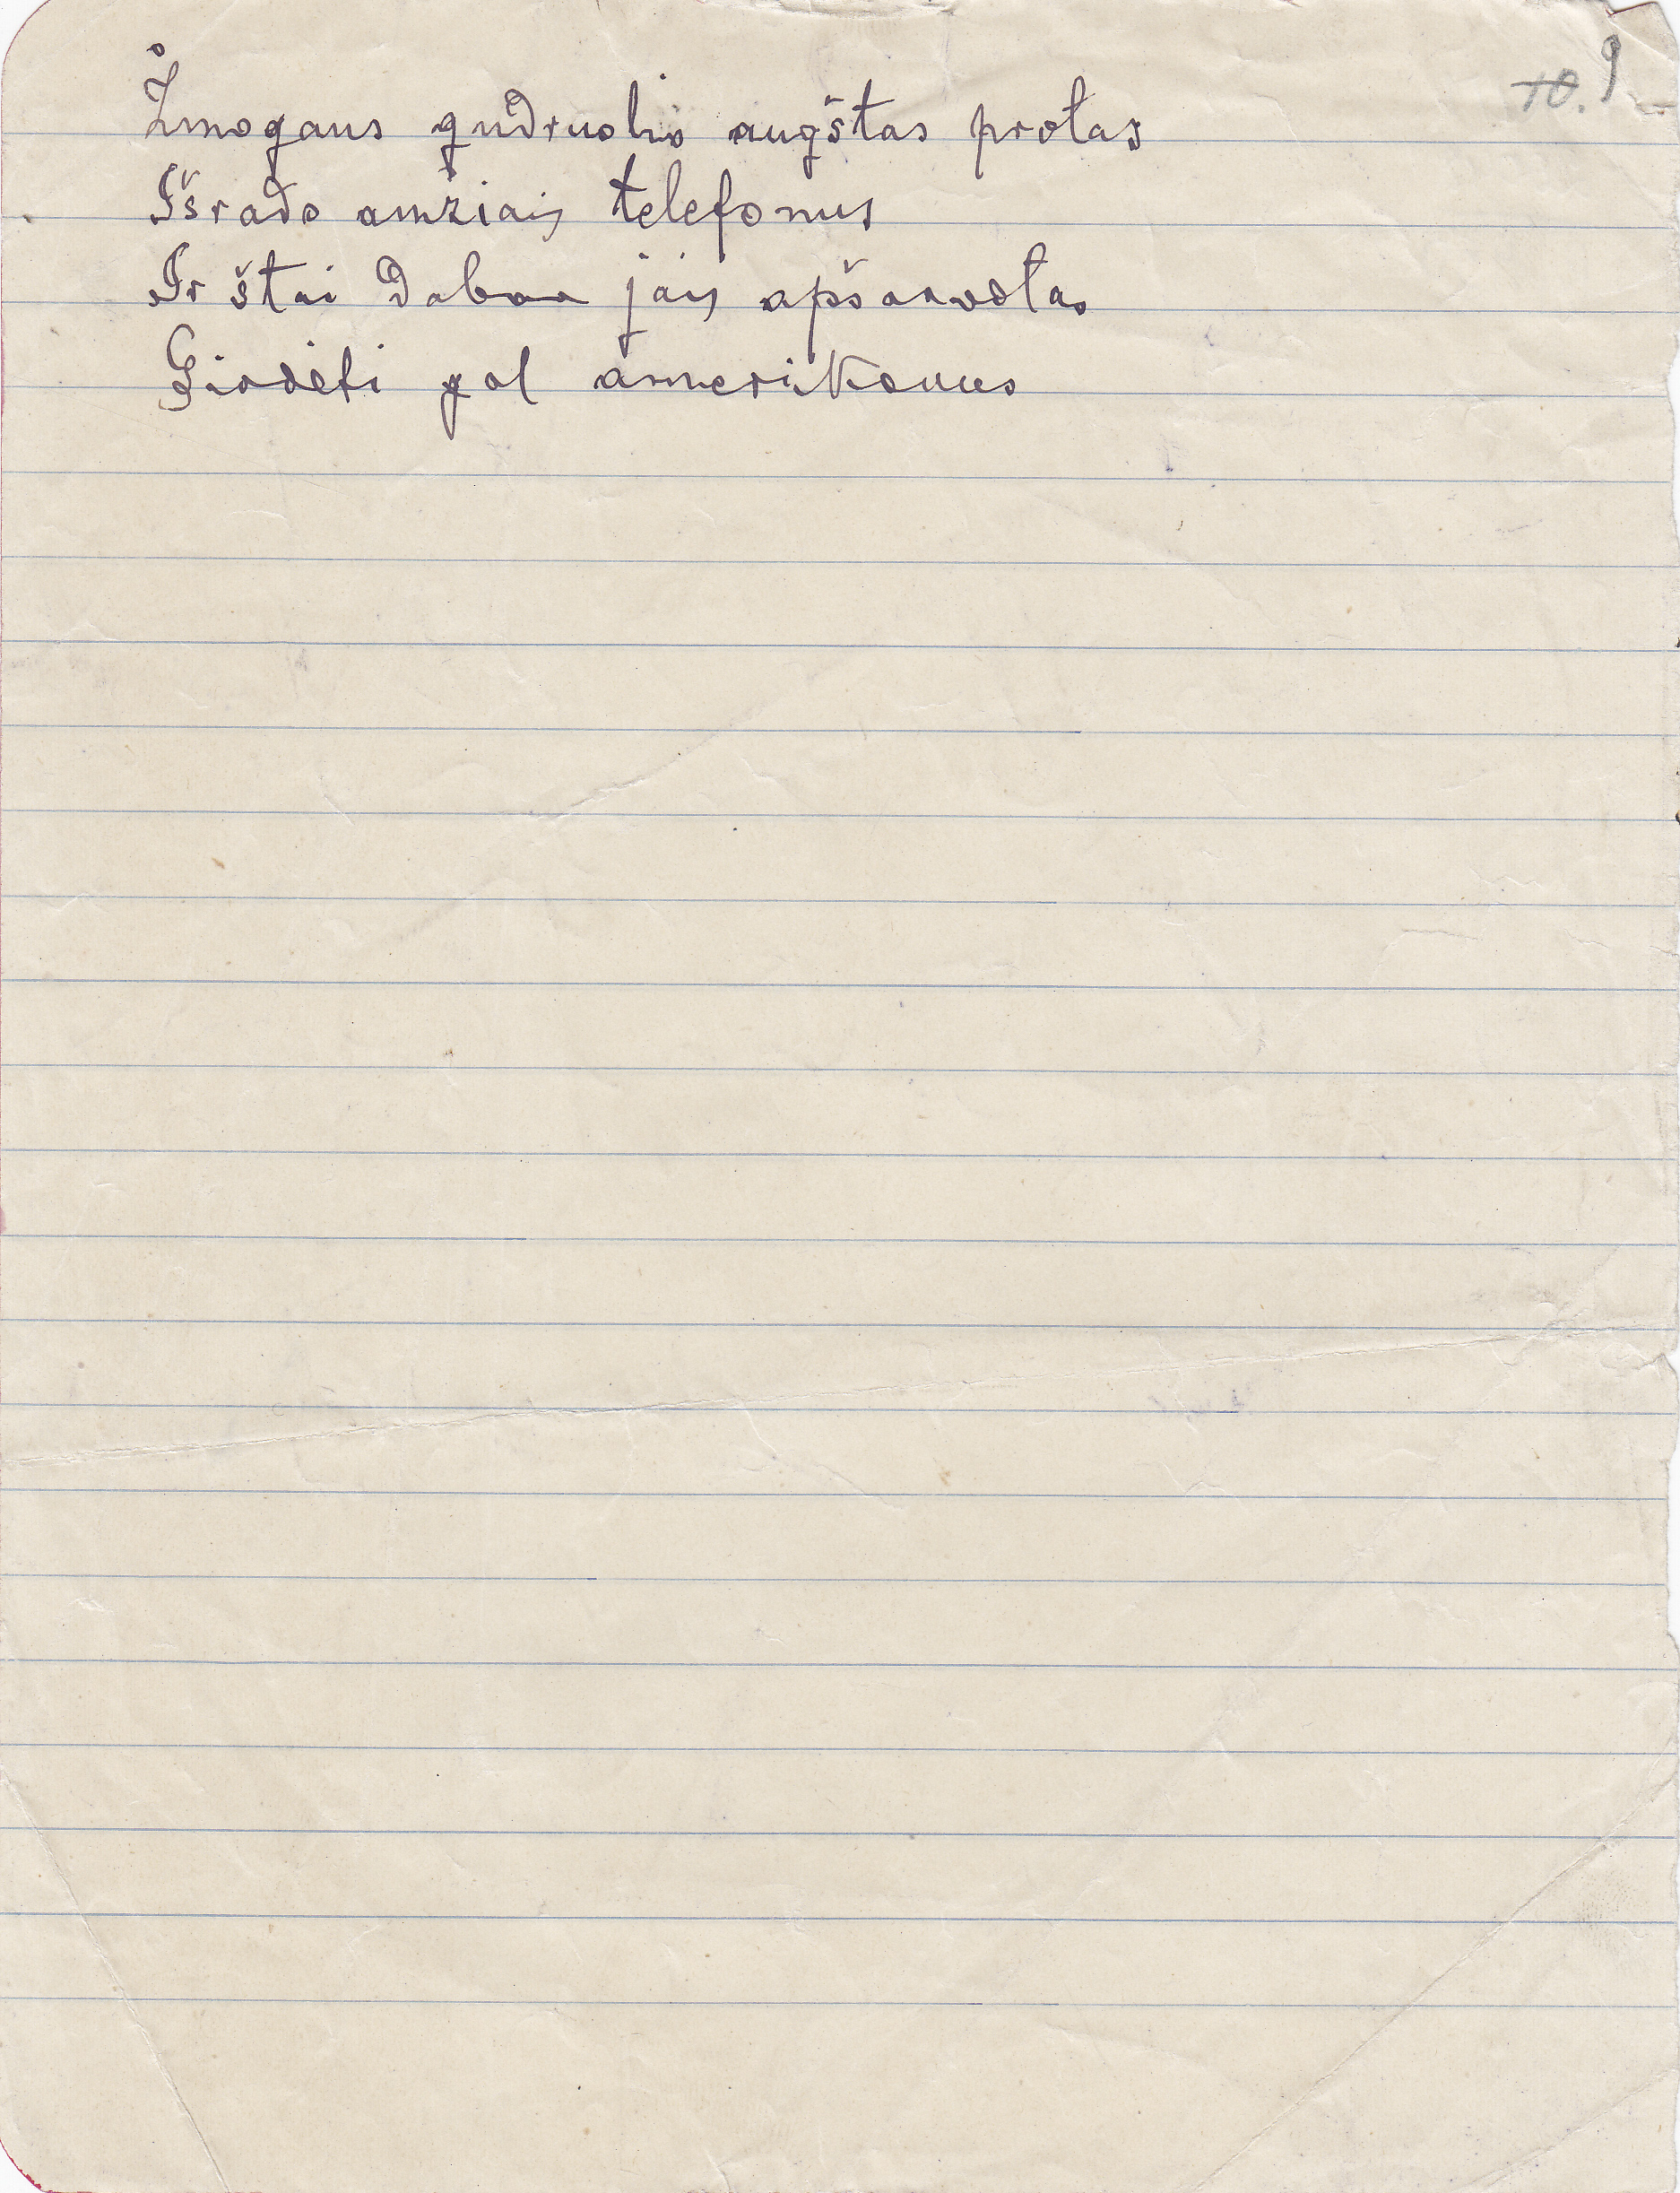 9
10.
Žmogaus gudruolio augštas protas
Išrado amžiais telefonus
Ir štai dabar jais apšarvotas
Girdėti gal amerikonus